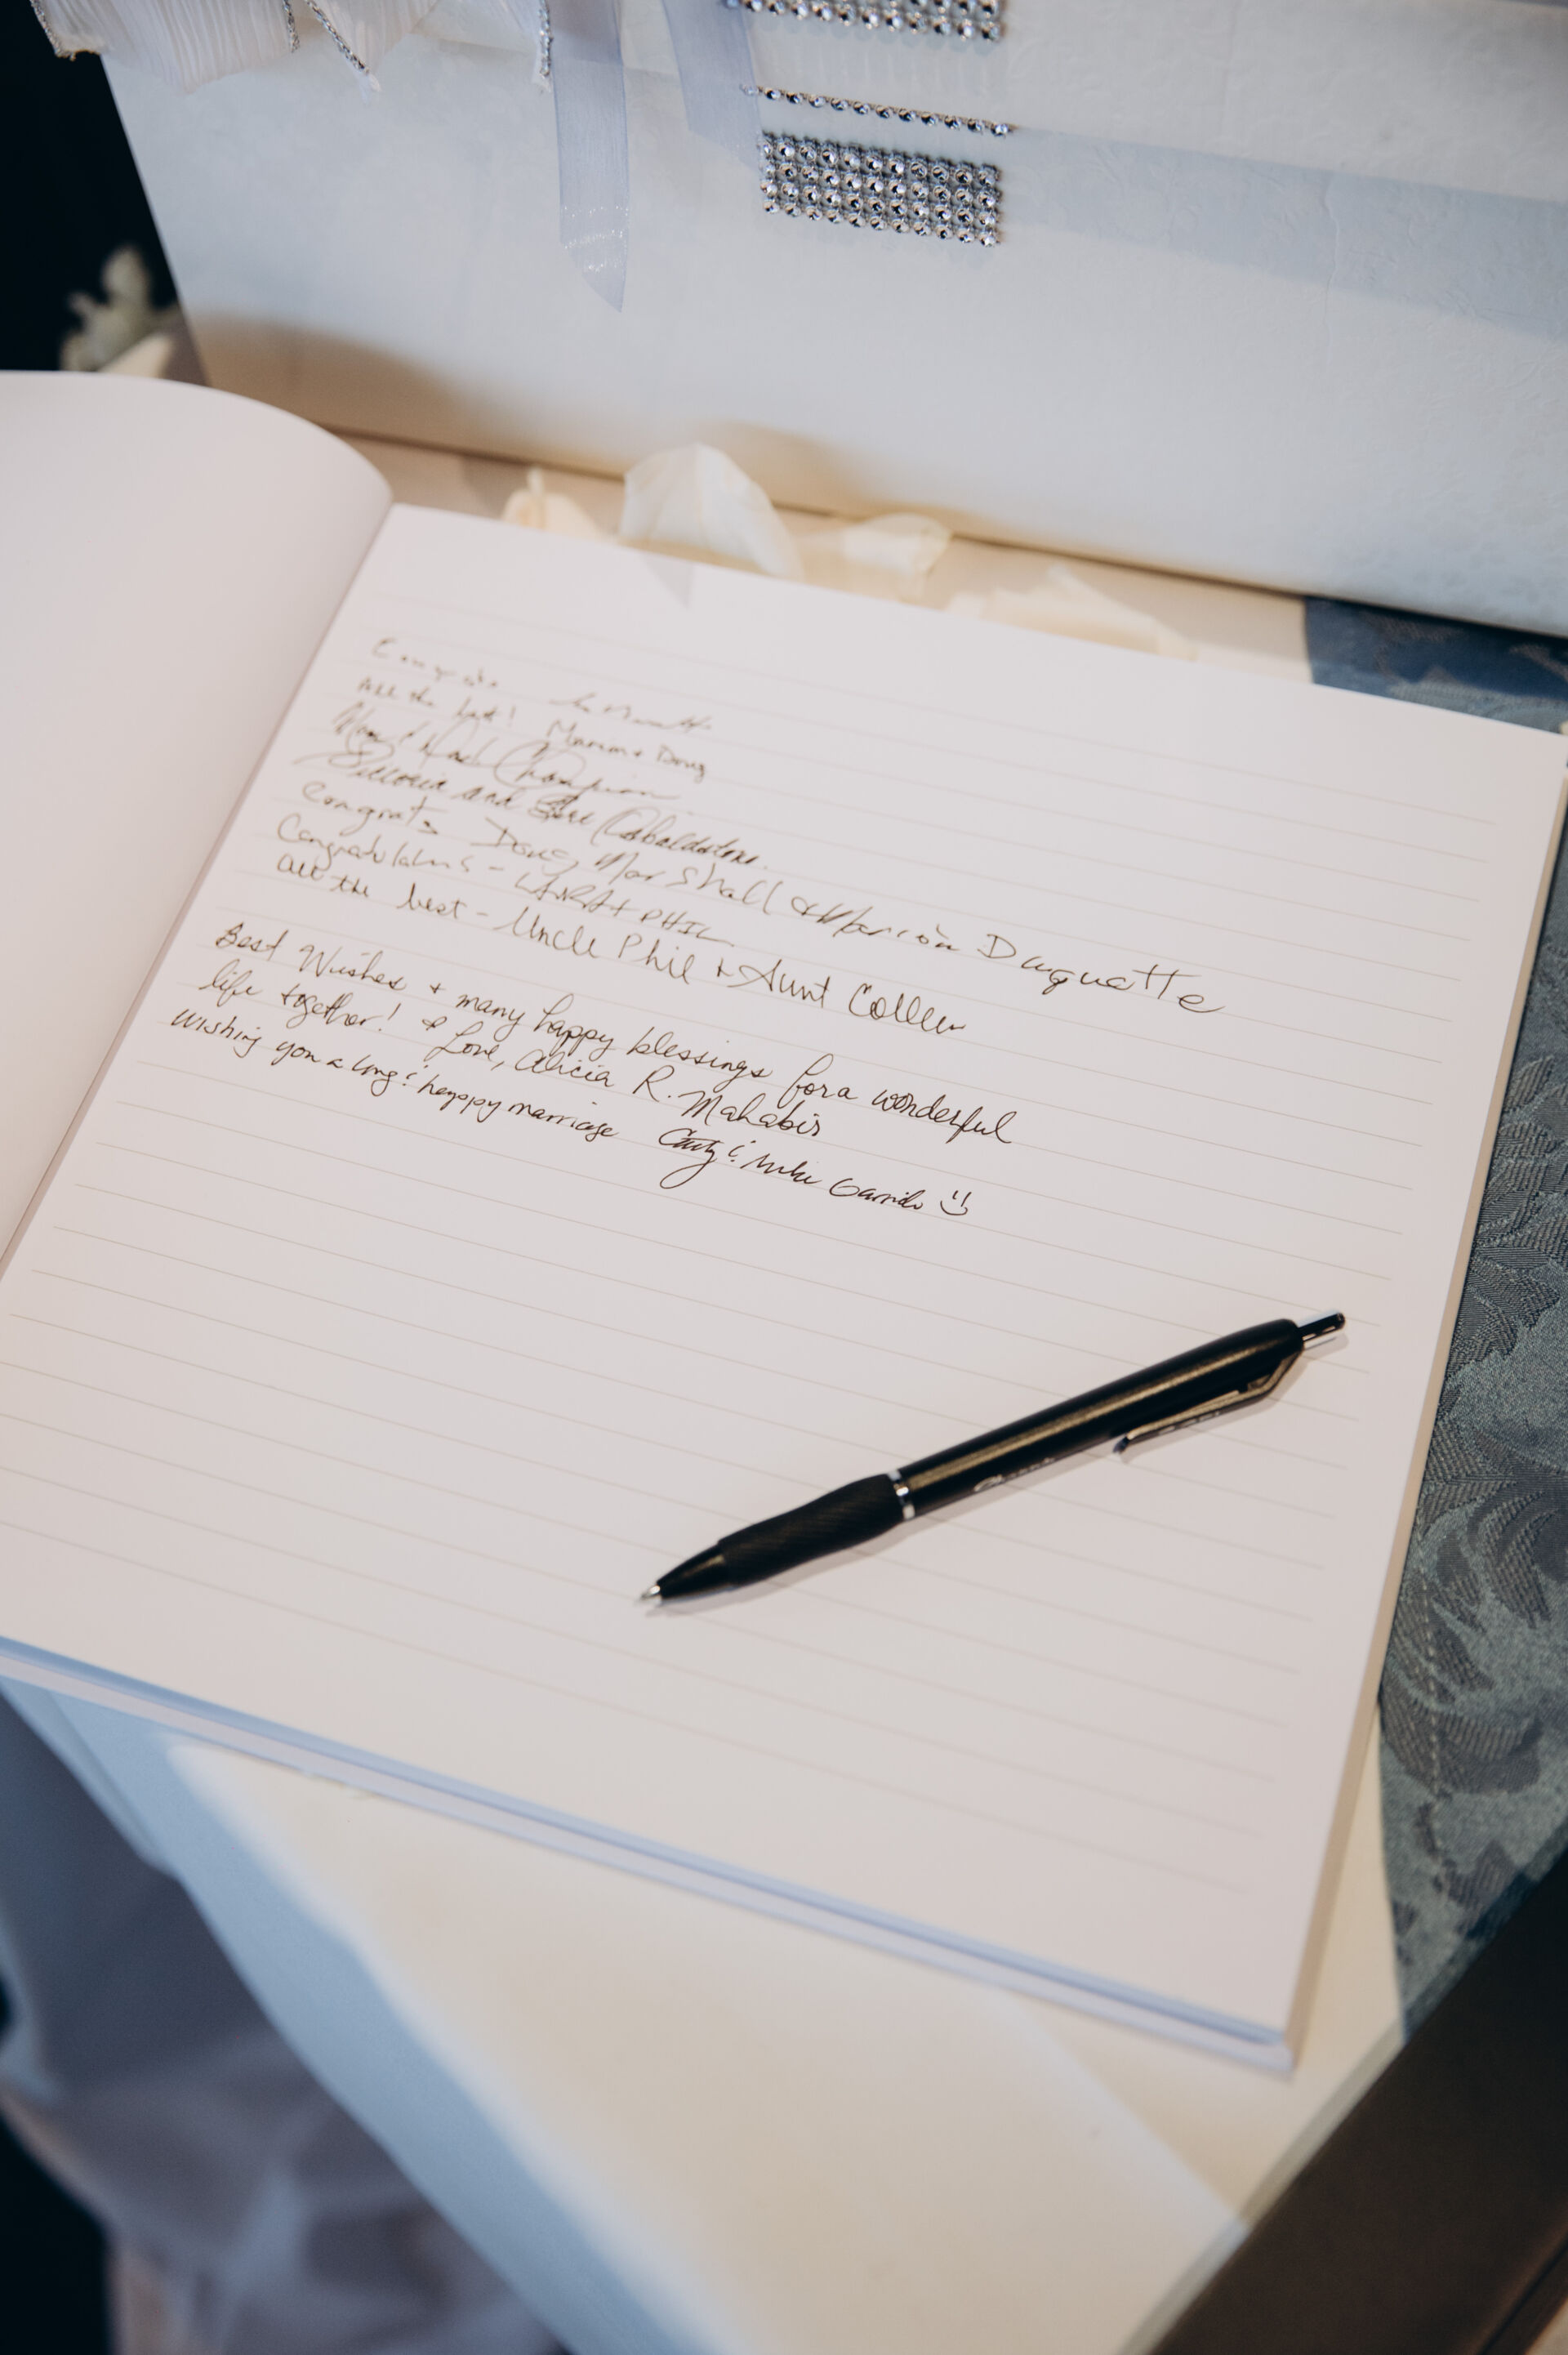 Congrats
All the best! Marion & Doug
Mom & Dad Champion
and
Congrats Doug Marshall & Marion Duquette
Congratulations - LARA + PHIL
All the best - Uncle Phil & Aunt Colleen
Best Wishes + many happy blessings for a wonderful
life together! Love, Alicia R. Mahabir
Wishing you a long & happy marriage & Mike Garrido